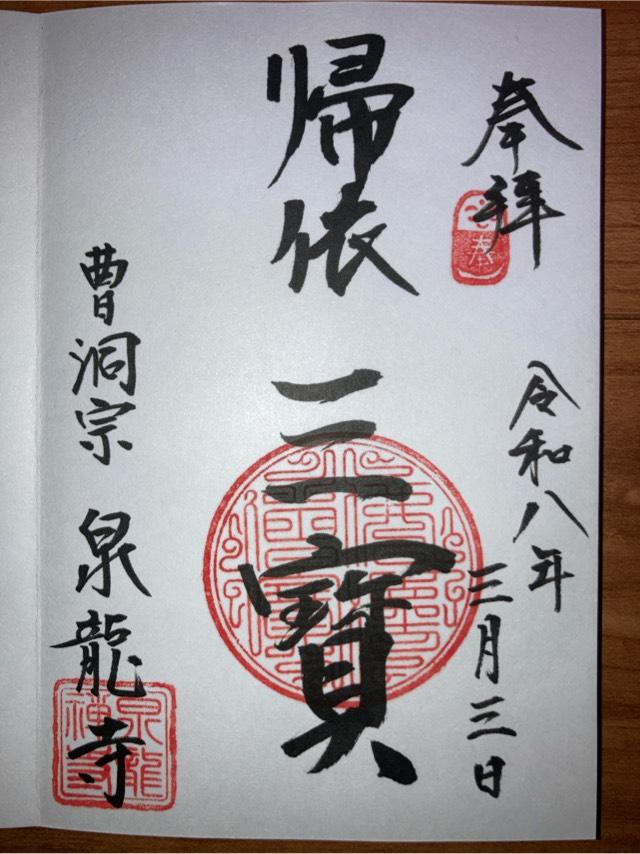 奉拝
令和八年
三月三日
帰依
三寳
曹洞宗 泉龍寺
奉
泉龍禅寺